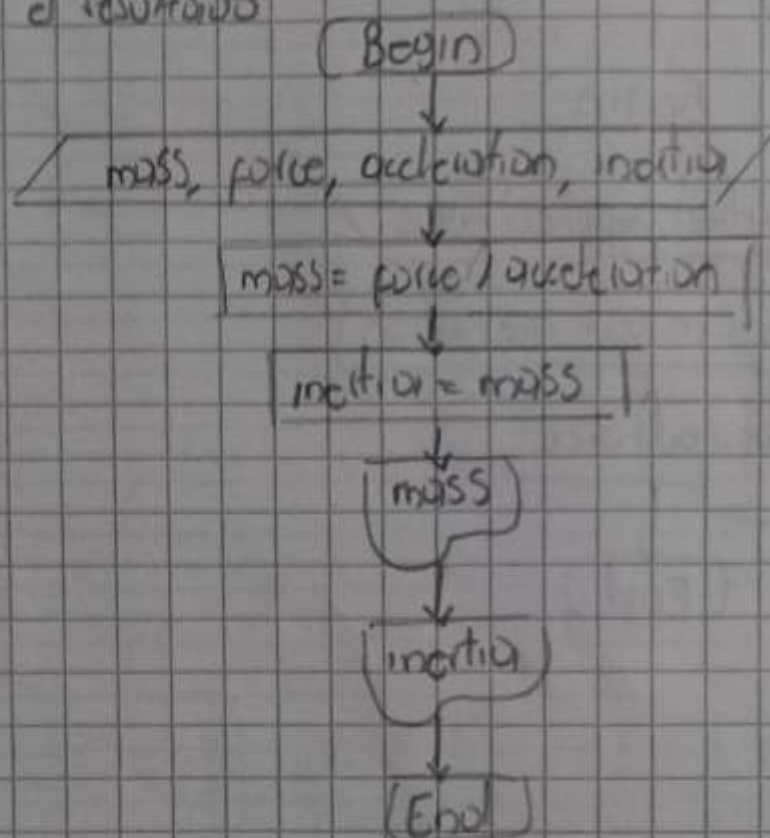 el resultado
Begin
mass, force, acceleration, inertia
mass = force / acceleration
inertia = mass
mass
inertia
End